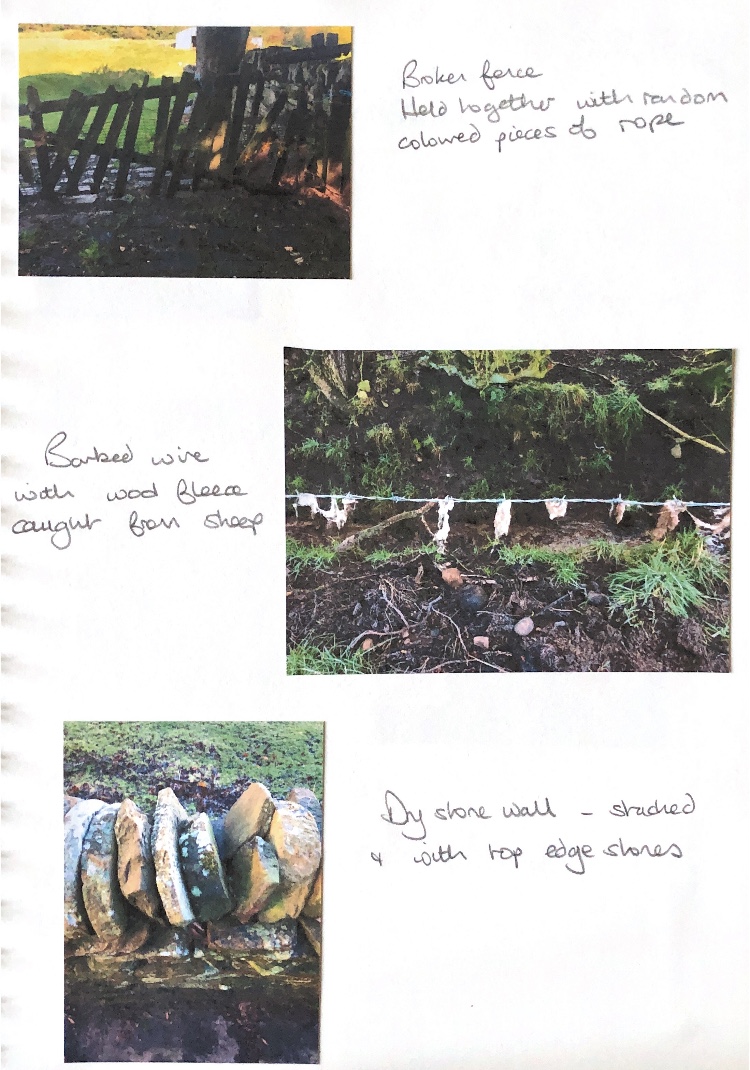 Broken fence
Held together with random
coloured pieces of rope
Barbed wire
with wool fleece
caught from sheep
Dry stone wall – stacked
& with top edge stones